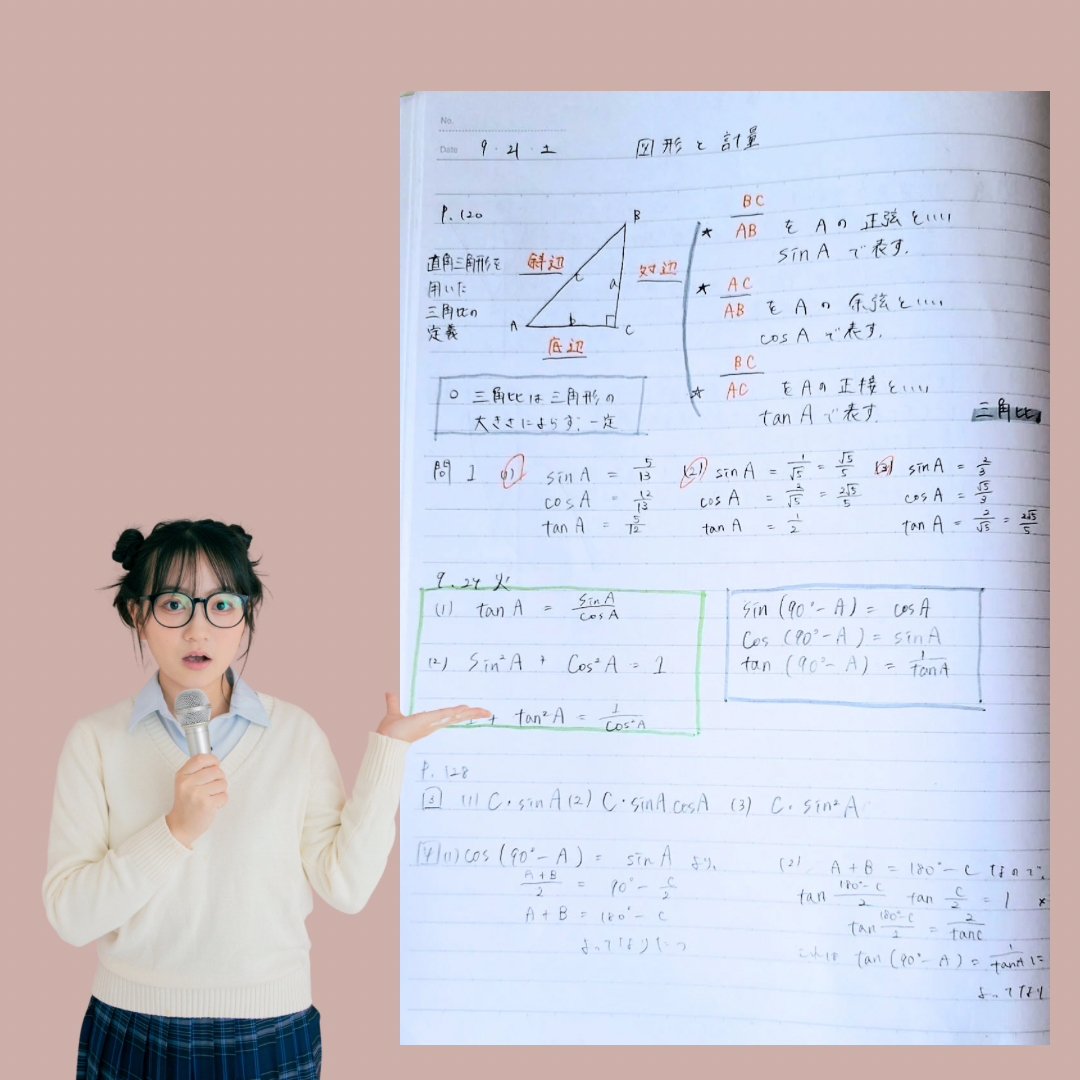 No.
Date 9・21・土
図形と計量
P. 120
直角三角形を
用いた
三角比の
定義
斜辺
対辺
底辺
A
B
C
a
b
c
★ BC/AB を A の 正弦といい
sin A で表す.
★ AC/AB を A の 余弦といい
cos A で表す.
★ BC/AC を A の 正接といい
tan A で表す.
三角比
○ 三角比は三角形の
大きさによらず 一定
問 1 (1) sin A = 5/13
cos A = 12/13
tan A = 5/12
(2) sin A = 1/√5 = √5/5
cos A = 2/√5 = 2√5/5
tan A = 1/2
(3) sin A = 2/3
cos A = √5/3
tan A = 2/√5 = 2√5/5
9. 24 火
(1) tan A = sin A/cos A
(2) sin²A + cos²A = 1
1 + tan²A = 1/cos²A
sin (90°- A) = cos A
cos (90°- A) = sin A
tan (90°- A) = 1/tan A
P. 128
3 (1) C・sin A (2) C・sin A cos A (3) C・sin²A
4 (1) cos (90°- A) = sin A より,
A+B/2 = 90°- C/2
A + B = 180°- C
よってなりたつ
(2) A + B = 180°- C なので,
tan 180°-C/2 tan C/2 = 1
tan 180°-C/2 = 2/tanC
これは tan (90°- A) = 1/tanA に
よってなり